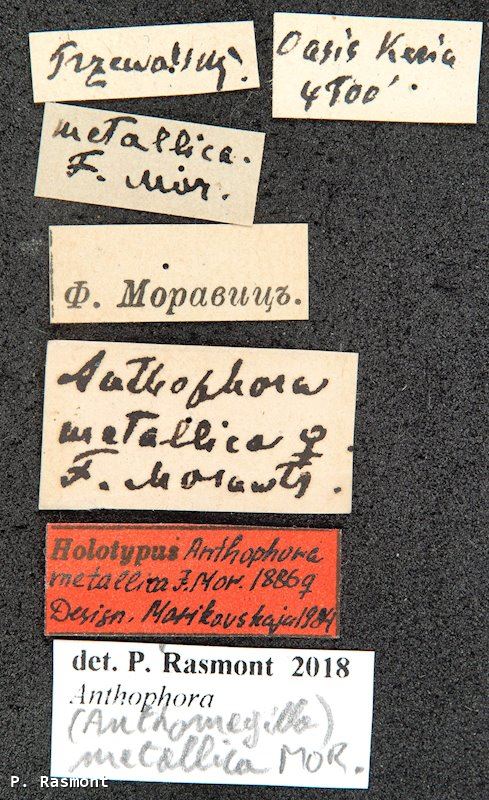 Przewalsky.
Oasis Keria
4500'.
metallica.
F. Mor.
Ф. Моравицъ.
Anthophora
metallica ♀.
F. Morawitz.
Holotypus Anthophora
metallica F. Mor. 1886 ♀
Design. Marikovskaja 1984
det. P. Rasmont 2018
Anthophora
(Anthomegilla)
metallica MOR.
P. Rasmont